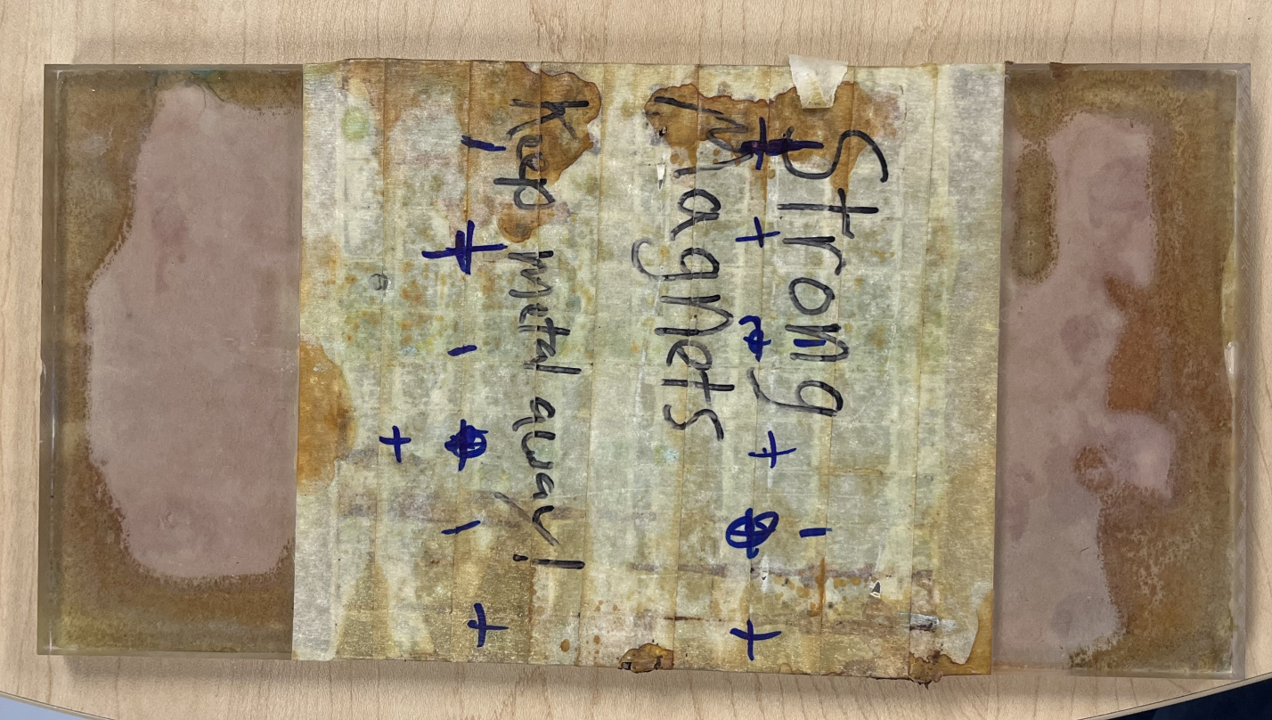 Strong
Magnets
Keep metal away!